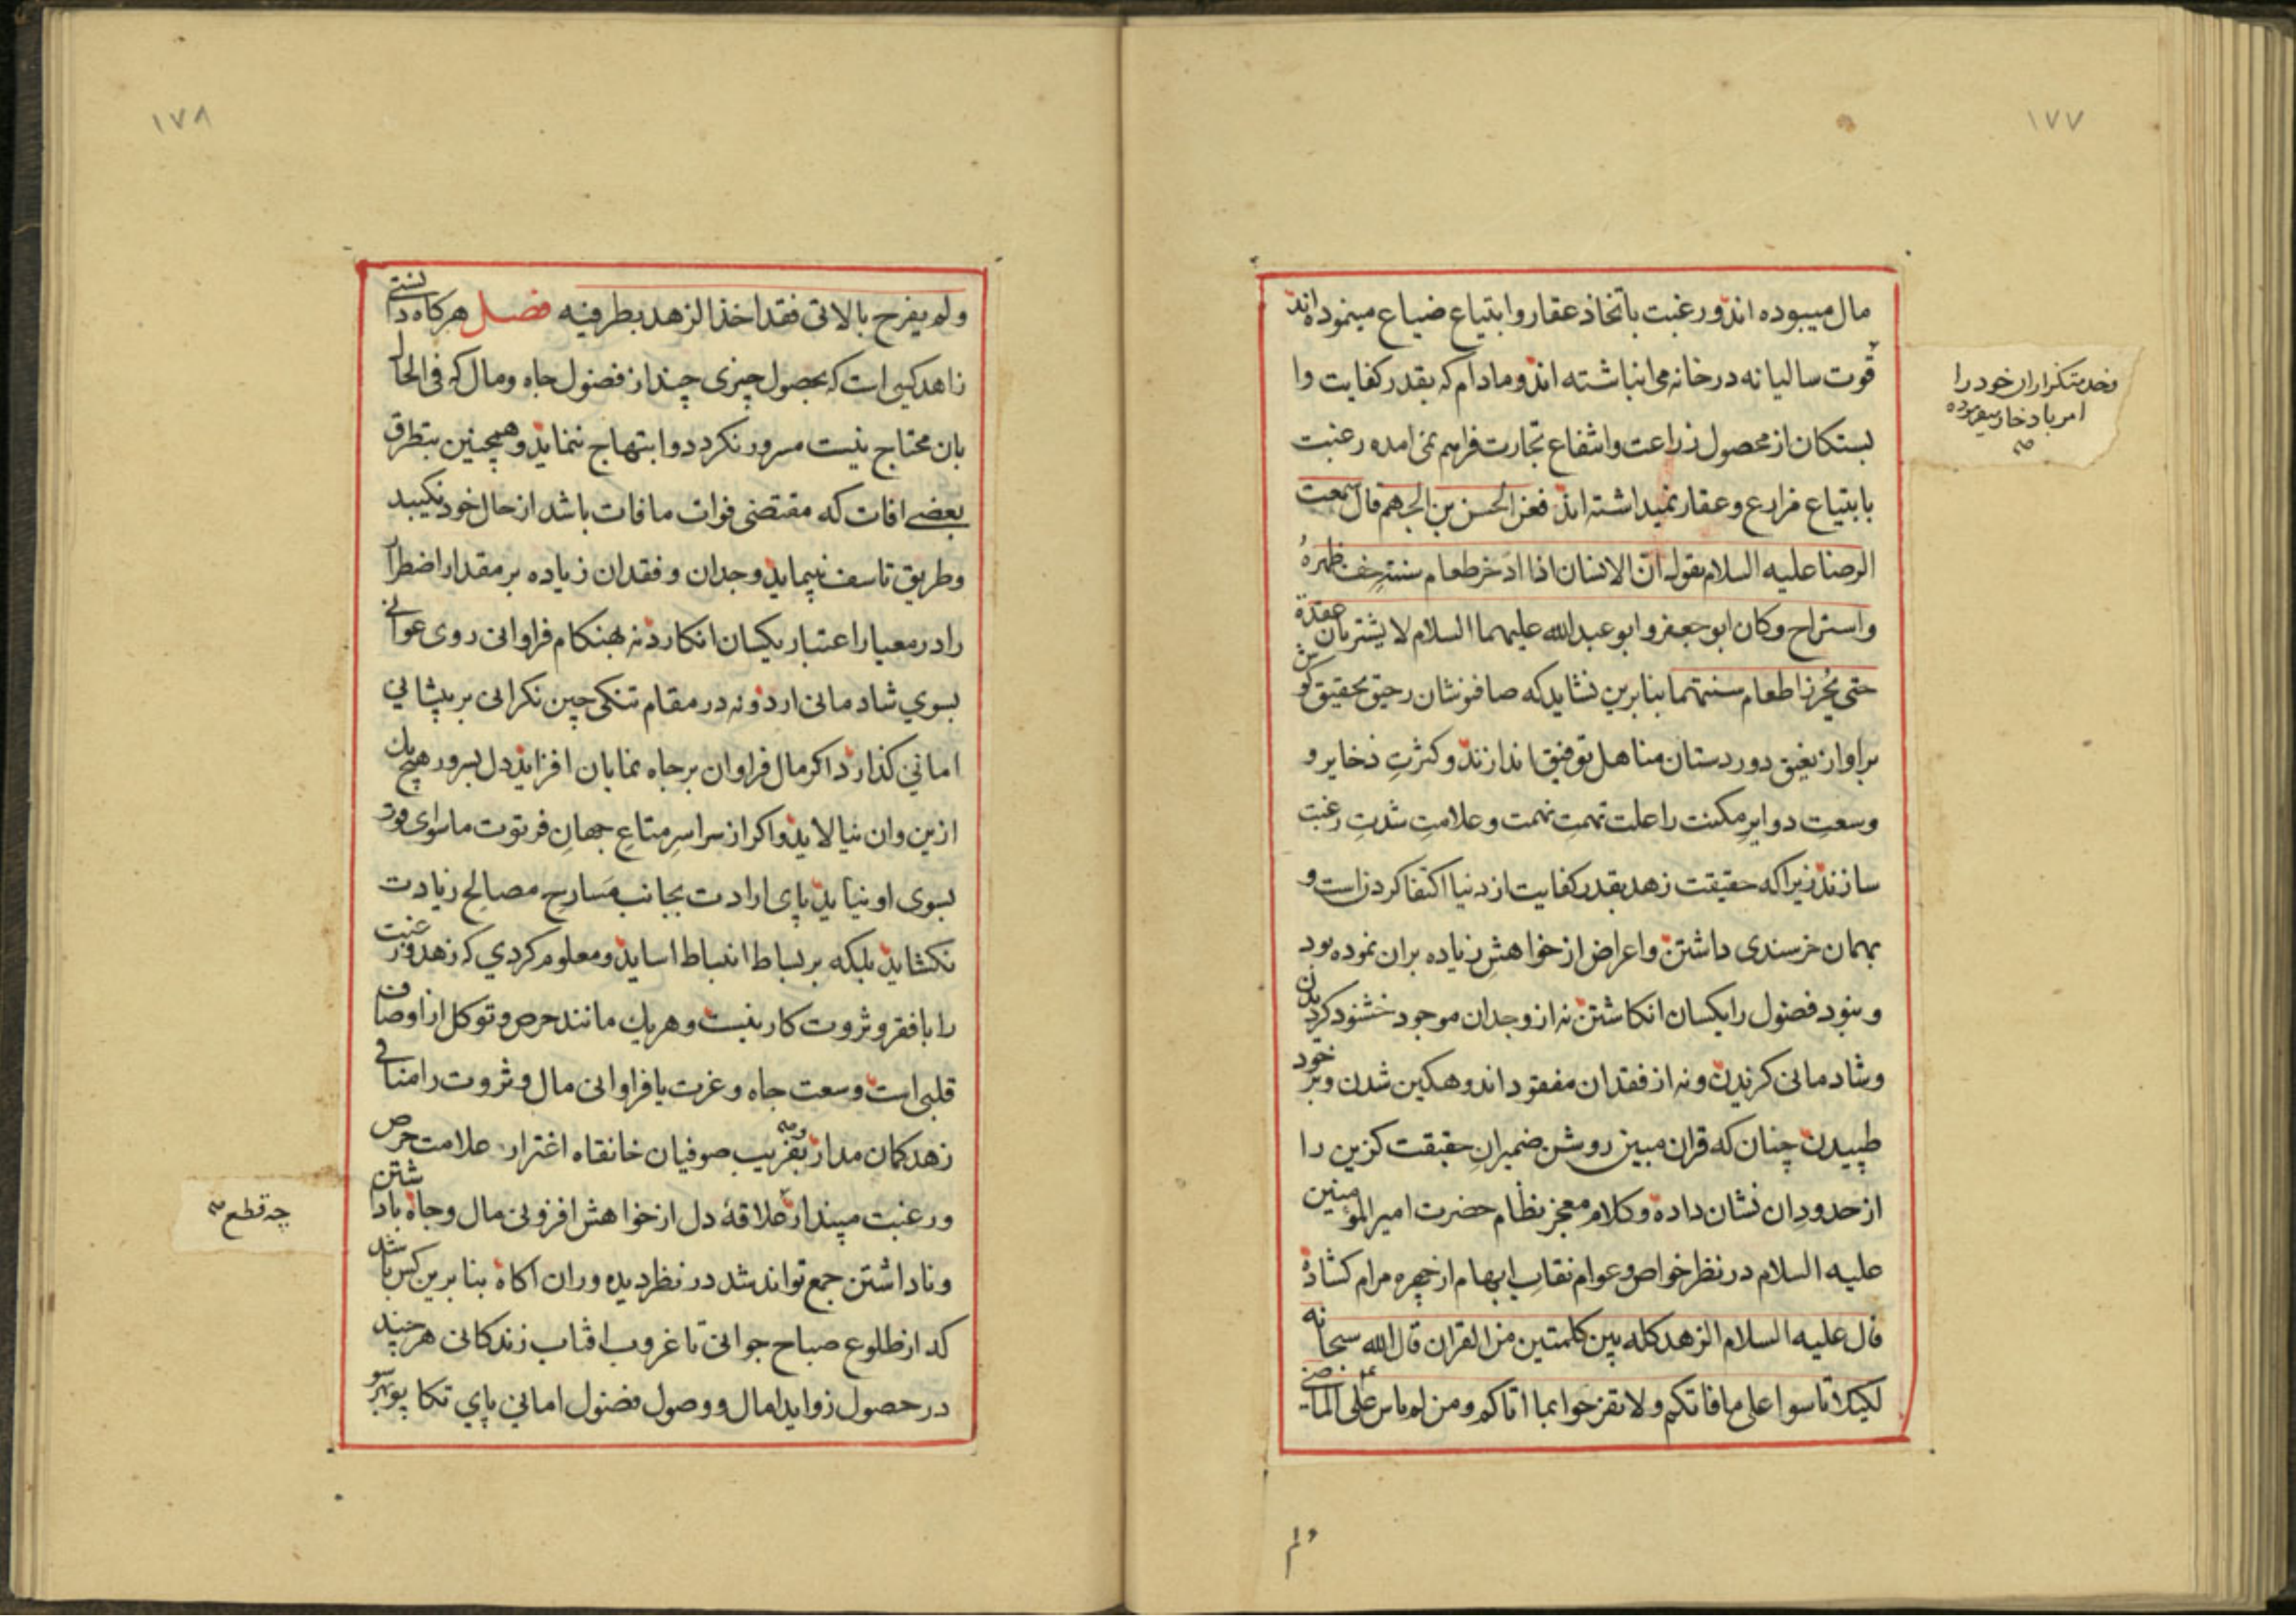 ١٧٧
مال میبوده اند ورغبت باتخاذ عقار وابتیاع ضیاع مینموده اند
قوت سالیانه در خانه می انباشته اند ومادام که بقدر کفایت وا
بستکان از محصول زراعت وانتفاع تجارت فراهم نمی امده رغبت
بابتیاع مزارع وعقار نمیداشته اند فعن الحسن بن الجهم قال سمعت
الرضا علیه السلام یقول ان الانسان اذا ادخر طعام سنتهِ خف ظهرهُ
واستراح وکان ابو جعفر وابو عبدالله علیهما السلام لا یشتریان عقدة
حتی یُحرزا طعام سنتهما بنابرین نشاید که صافنوشان رحیق تحقیق کوش
براواز نعیق دوردستان مناهل توفیق اندازند وکثرتِ ذخایر و
وسعتِ دوایرِ مکنت را علت تهمتِ نهمت وعلامتِ شدتِ رغبت
سازند زیرا که حقیقت زهد بقدر کفایت از دنیا اکتفا کردن است و
بهمان خرسندی داشتن واعراض از خواهشِ زیاده بران نموده بود
ونبود فضول را یکسان انکاشتن نه از وجدان موجود خشنود کردیدن
وشادمانی کزیدن ونه از فقدان مفقود اندوهکین شدن وبر خود
طپیدن چنان که قران مبین روشن ضمیرانِ حقیقت کزین را
از حدودِ ان نشان داده وکلام معجز نظام حضرت امیرالمؤمنین
علیه السلام در نظر خواص وعوام نقابِ ابهام از چهره مرام کشاده
قال علیه السلام الزهد کله بین کلمتین من القران قال الله سبحانه
لکیلا تاسوا علی مافاتکم ولا تفرحوا بما اتاکم ومن لم یاس علی الماضی
وخدمتکاران خود را
امر بادخار میفرموده
صح
ولم
١٧٨
ولم یفرح بالاتی فقد اخذ الزهد بطرفیه فصل هرکاه دانستی
زاهد کیی است که بحصول چیزی چند از فضول جاه ومال که فی الحال
بان محتاج نیست مسرور نکردد وابتهاج ننماید وهمچنین بتطرق
بعضی افات که مقتضی فوات مافات باشد از حال خود نکیبد
وطریق تاسف نپیماید وجدان وفقدان زیاده بر مقدار اضطرار
را در معیار اعتبار یکسان انکارد نه بهنکام فراوانی روی عوانی
بسوی شادمانی ارد ونه در مقام تنکی چین نکرانی بر پیشانی
امانی کذارد اکر مال فراوان بر جاه نمایان افزاید دل بسرور هیچ یک
ازین وان نیالاید واکر از سراسرِ متاعِ جهانِ فرتوت ماسوای قوت
بسوی او نیاید پای ارادت بجانب مَسارح مصالح زیادت
نکشاید بلکه بر بساط انبساط اساید ومعلوم کردی که زهد ورغبت
را با فقر وثروت کار نیست وهریک مانند حرص وتوکل از اوصاف
قلبی است وسعت جاه وعزت یا فراوانی مال وثروت را منافی
زهد کمان مدار وبفریب صوفیان خانقاه اغترار علامت حرص
ورغبت مپندار علاقهٔ دل از خواهش افزونی مال وجاه باداشتن
وناداشتن جمع تواند شد در نظر دیده وران اکاه بنابرین کس باشد
که از طلوع صباح جوانی تا غروب افتاب زندکانی هرچند
در حصول زواید امال ووصول فضول امانی پای تکاپو بهرسو
چه قطع صح